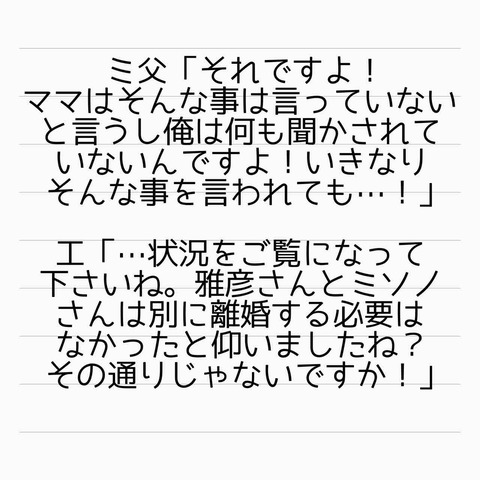 ミ父「それですよ！
ママはそんな事は言っていない
と言うし俺は何も聞かされて
いないんですよ！いきなり
そんな事を言われても…！」
工「…状況をご覧になって
下さいね。雅彦さんとミソノ
さんは別に離婚する必要は
なかったと仰いましたね？
その通りじゃないですか！」